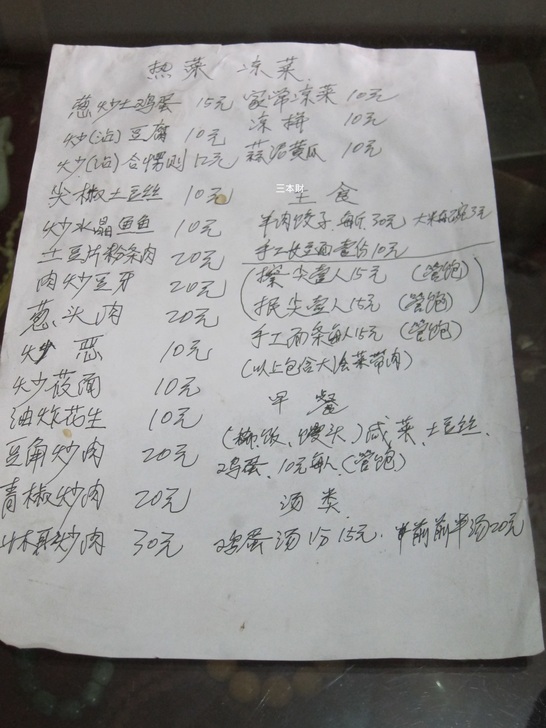 热菜 凉菜
葱炒土鸡蛋 15元 家常凉菜 10元
炒(沾)豆腐 10元 凉拼 10元
炒(沾)合愣则 12元 蒜泥黄瓜 10元
尖椒土豆丝 10元
三本財
主食
炒水晶鱼鱼 10元 羊肉饺子 每斤 30元 大米每碗3元
土豆片粉条肉 20元 手工长豆面壹份10元
肉炒豆牙 20元 (擦尖壹人15元 (管饱)
葱头肉 20元 抿尖壹人15元 (管饱))
炒恶 10元 手工面条每人15元 (管饱)
(以上包含大烩菜带肉)
炒莜面 10元 早餐
油炸花生 10元 (稀饭、馒头)咸菜、土豆丝、
豆角炒肉 20元 鸡蛋、10元每人(管饱)
青椒炒肉 20元 汤类
木耳炒肉 30元 鸡蛋汤1份15元. 羊汤20元